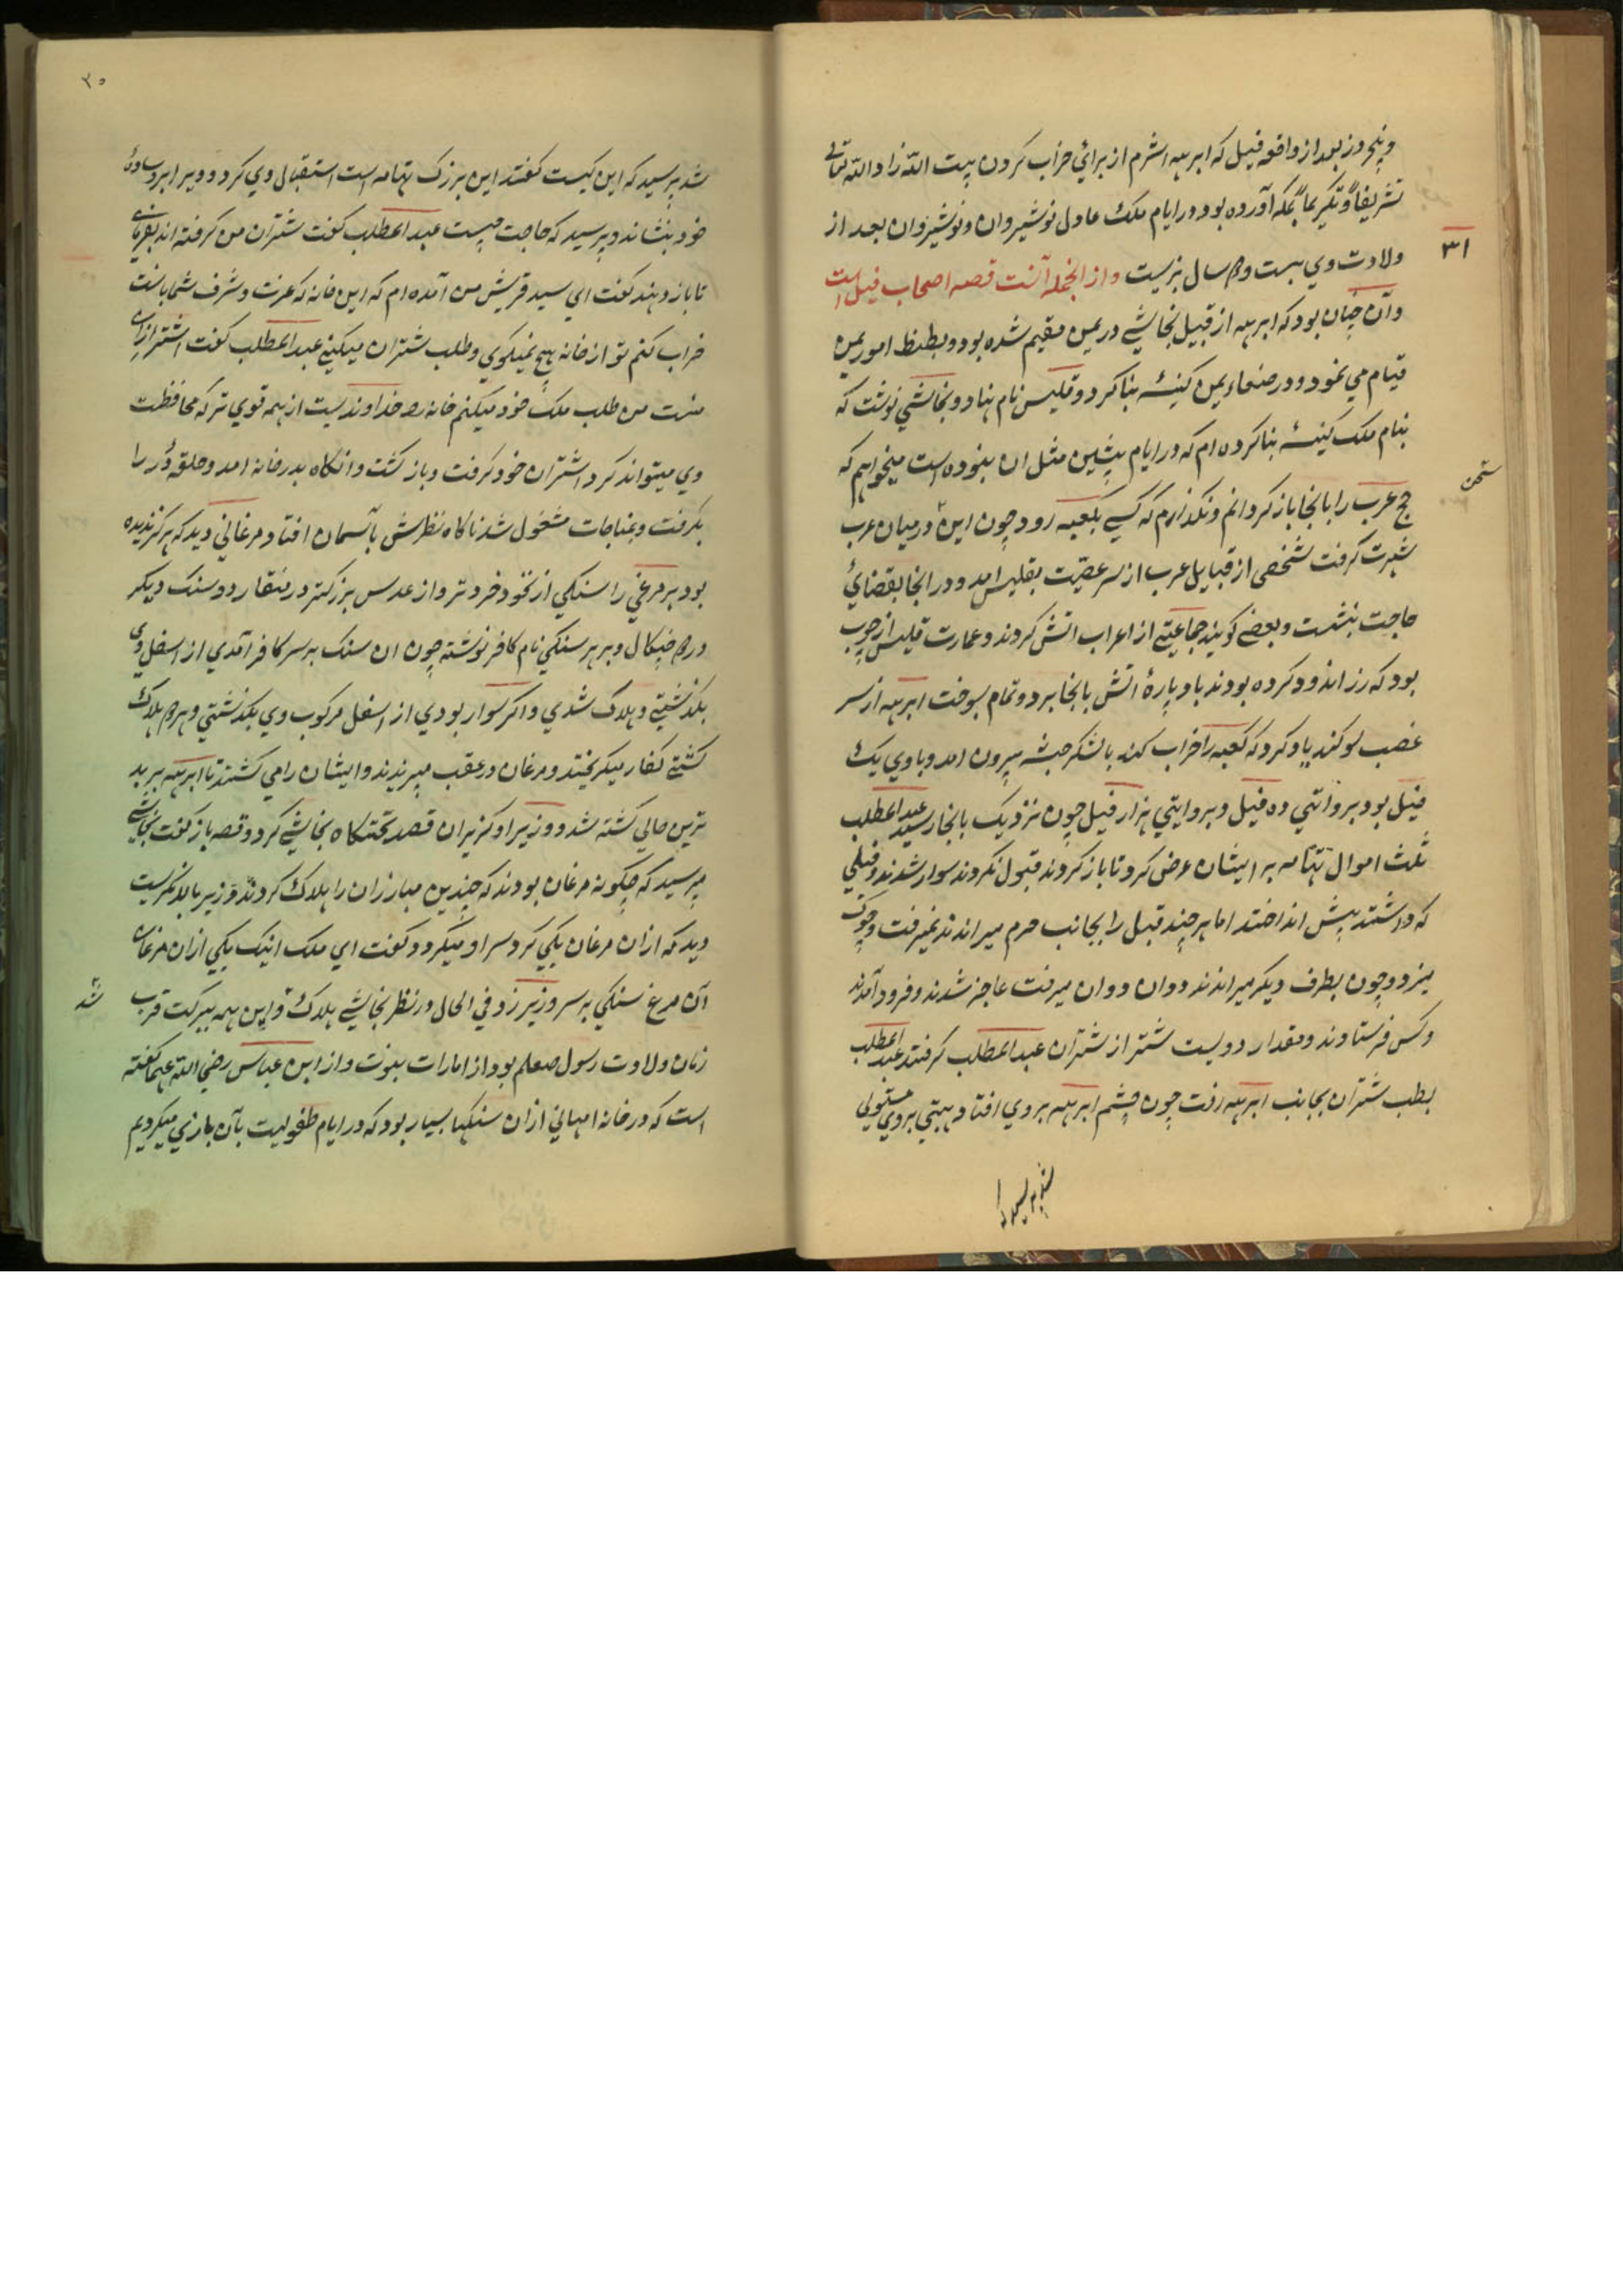 وپنجروز بعد از واقعه فیل که ابرهه اشرم از برائ خراب کردن بیت الله زاد الله تعالی
تشریفاً وتکریماً بمکه آورده بود در ایام ملک عادل نوشیروان ونوشیروان بعد از
۳۱
ولادت وی بیست ودو سال بزیست واز انجمله آنست قصه اصحاب فیل است
وآن چنان بود که ابرهه از قبیل نجاشی در یمن مقیم شده بود وبضبط امور یمن
قیام می نمود ودر صنعاء یمن کنیسهٔ بنا کرد وقلیس نام نهاد وبنجاشی نوشت که
بنام ملک کنیسهٔ بنا کرده ام که در ایام پیشین مثل ان نبوده است میخواهم که
سخن
حج عرب را بانجا باز گردانم ونگذارم که کسی بکعبه رود چون این در میان عرب
شهرت گرفت شخصی از قبایل عرب از سر عصبیّت بقلیس امد ودر انجا بقضایٔ
حاجت بنشست وبعضی گویند جماعتی از اعراب اتش کردند وعمارت قلیس از چوب
بود که زر اندود کرده بودند باد پارهٔ اتش بانجا برد وتمام بسوخت ابرهه از سر
غضب سوگند یاد کرد که کعبه را خراب کند با لشکر حبشه بیرون امد وبا وی یک
فیل بود بروایتی ده فیل وبروایتی هزار فیل چون نزدیک بانجا رسید عبد المطلب
ثلث اموال تهامه بر ایشان عرض کرد تا باز گردند قبول نکردند سوار شدند وفیلی
که داشتند پیش انداختند اما هر چند فیل را بجانب حرم میراندند نمیرفت وچوک
میزد وچون بطرف دیگر میراندند دوان دوان میرفت عاجز شدند وفرود آمدند
وکس فرستادند ومقدار دویست شتر از شتران عبد المطلب گرفتند عبد المطلب
بطلب شتران بجانب ابرهه رفت چون چشم ابرهه بروی افتاد هیبتی بروی مستولی
شد پرسید
۳۰
شد پرسید که این کیست گفتند این بزرگ تهامه است استقبال وی کرد وویرا بر وساده
خود بنشاند وپرسید که حاجت چیست عبد المطلب گفت شتران من گرفته اند بفرمای
تا باز دهند گفت ای سید قریش من آمده ام که این خانه که عزت وشرف شما بانست
خراب کنم تو از خانه هیچ نمیگوی وطلب شتران میکنی عبد المطلب گفت اشتر از ان
منست من طلب ملک خود میکنم خانه را خداوندیست از همه قوی تر که محافظت
وی میتواند کرد اشتران خود گرفت وباز گشت وانگاه بدر خانه امد وحلقه در را
بگرفت وبمناجات مشغول شد ناگاه نظرش بآسمان افتاد مرغانی دید که هرگز ندیده
بود هر مرغی را سنگی از نخود خردتر واز عدس بزرگتر در منقار ودو سنگ دیگر
در دو چنگال وبر هر سنگی نام کافر نوشته چون ان سنگ بر سر کافر آمدی از اسفل وی
بگذشتی وهلاک شدی واگر سوار بودی از اسفل مرکوب وی بگذشتی وهر دو هلاک
گشتی کفار میگریختند ومرغان در عقب میپریدند وایشان را می کشتند تا ابرهه ببد
ترین حالی کشته شد ووزیر او گریزان قصد تختگاه نجاشی کرد وقصه باز گفت نجاشی
پرسید که چگونه مرغان بودند که چندین مبارزان را هلاک کردند وزیر بالا نگریست
دید که ازان مرغان یکی گرد سر او میگردد گفت ای ملک اینک یکی ازان مرغان
شد
آن مرغ سنگی بر سر وزیر زد فی الحال در نظر نجاشی هلاک واین همه ببرکت قرب
زمان ولادت رسول صعلم بود از امارات نبوت واز ابن عباس رضی الله عنهما گفته
است که در خانه امهانی ازان سنگها بسیار بود که در ایام طفولیت بآن بازی میکردیم